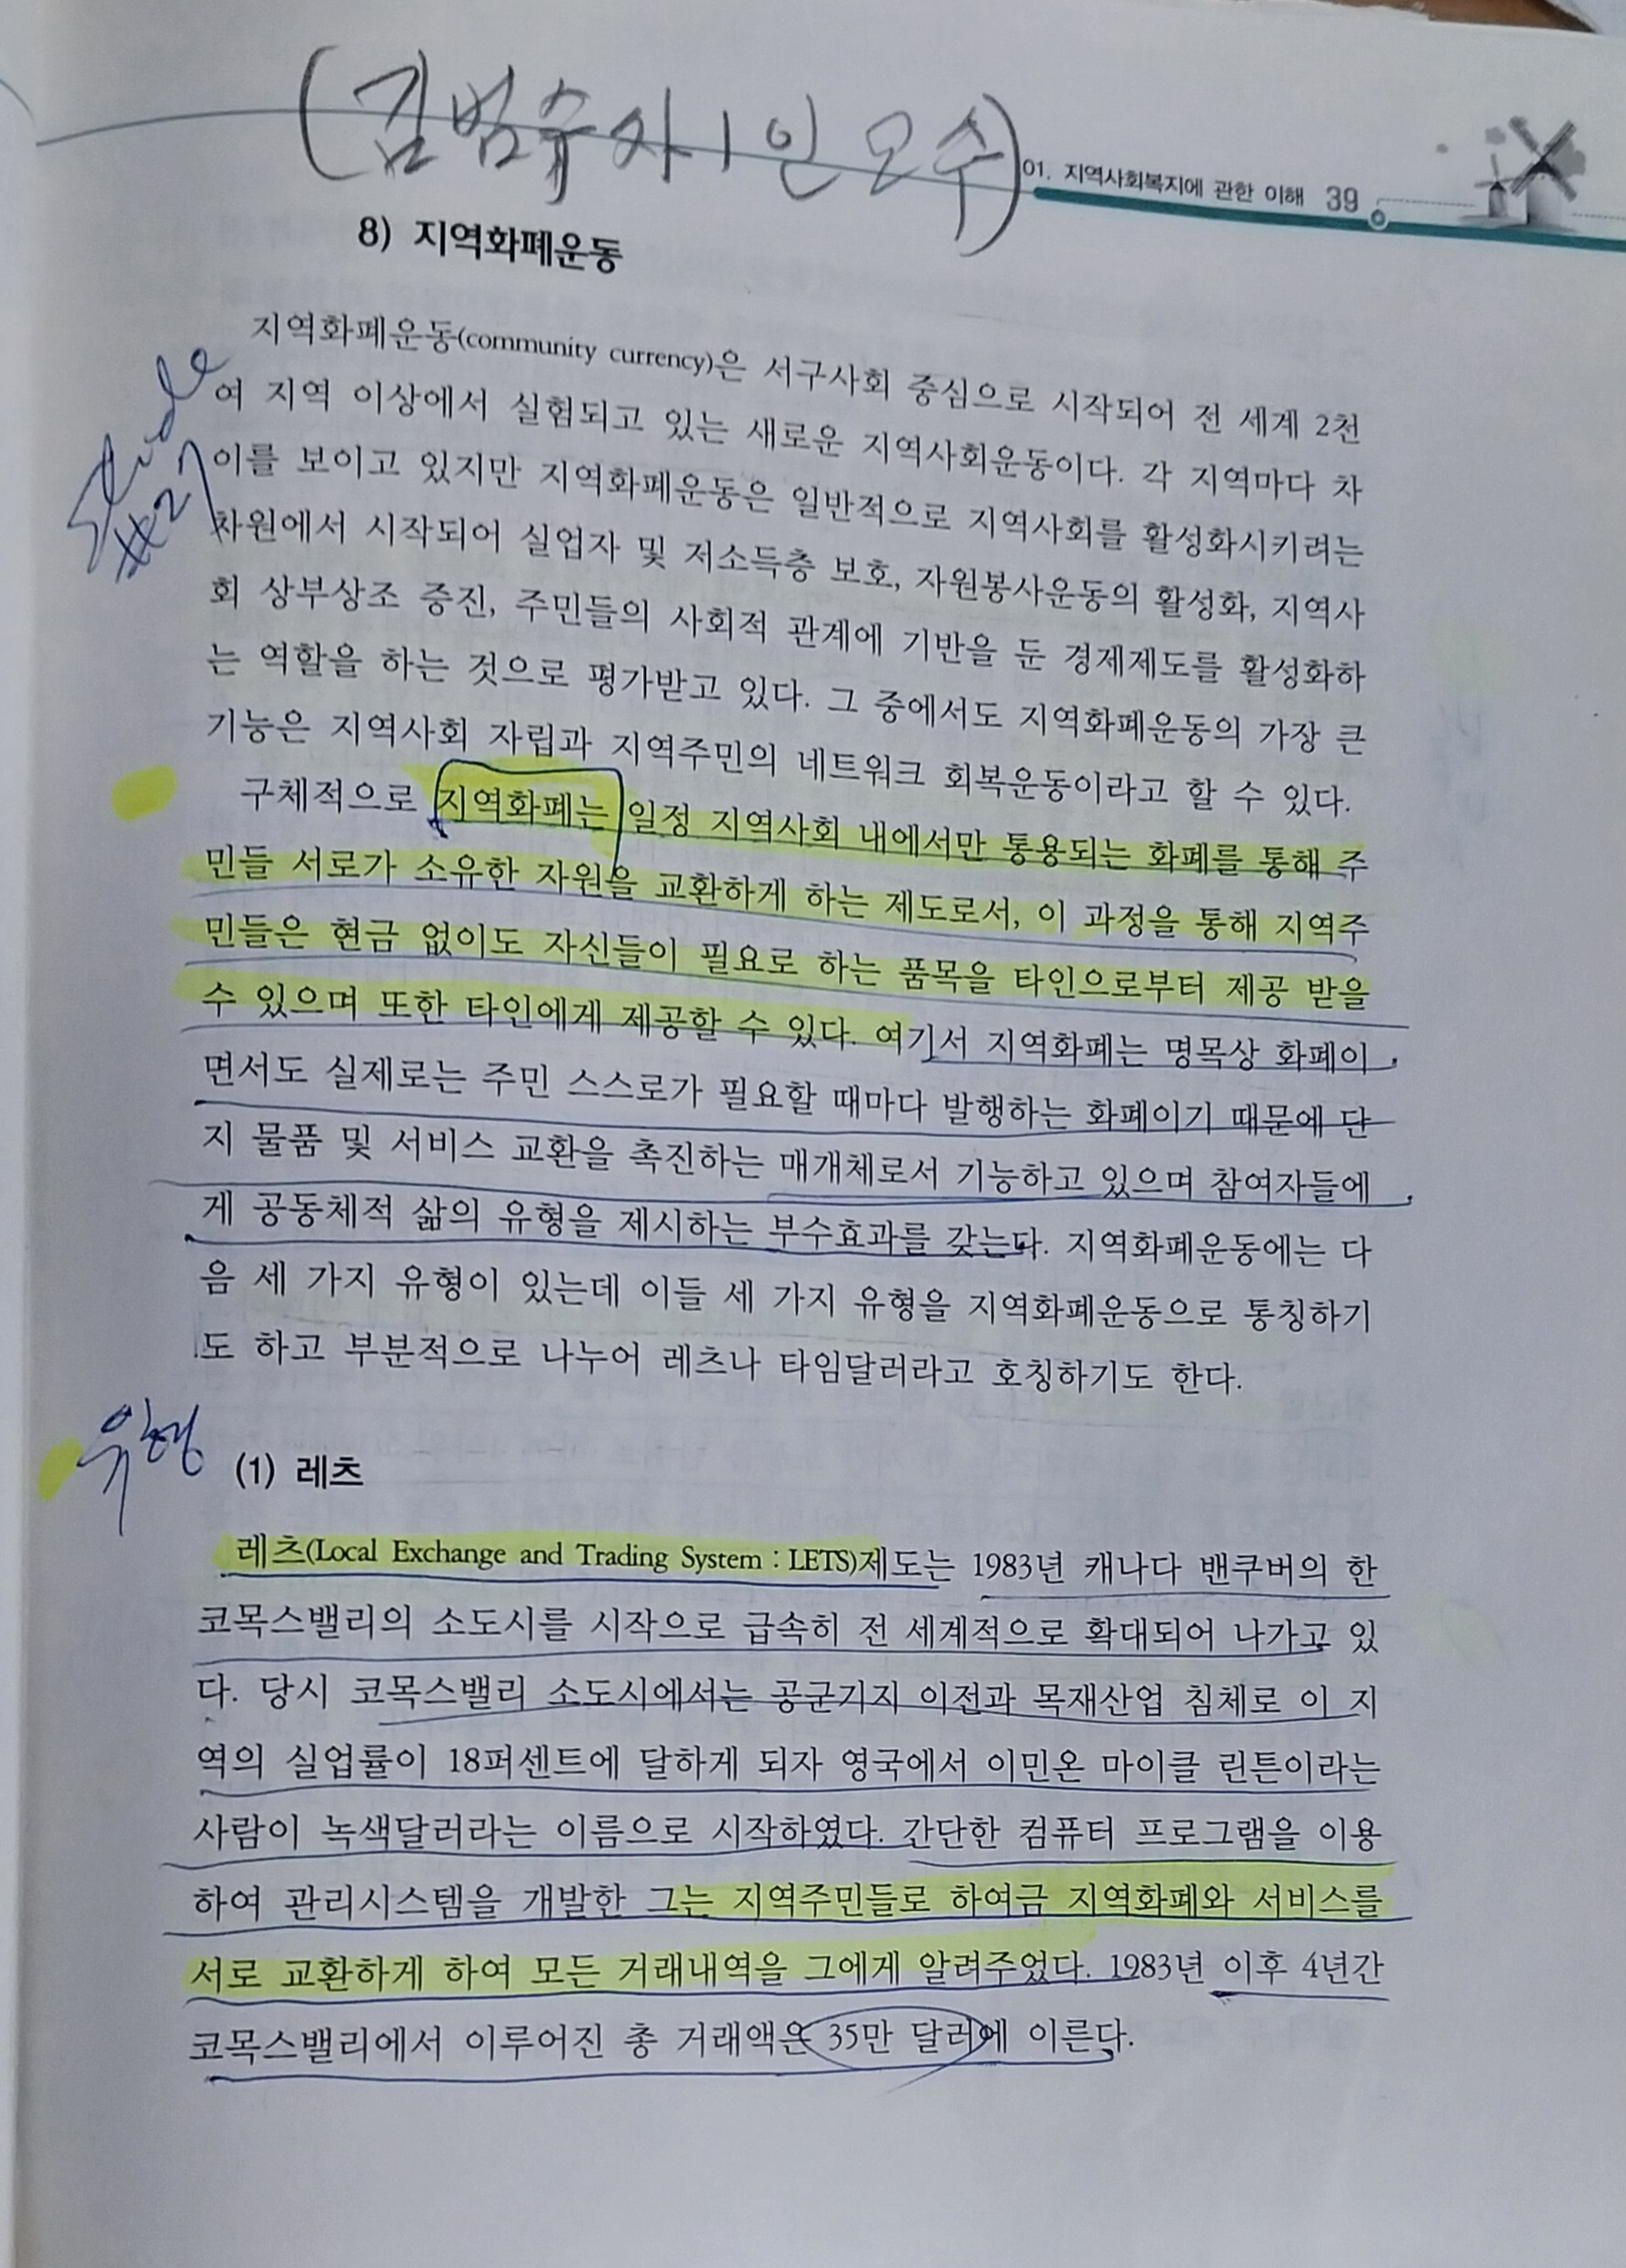 (김범수 자 인 모수)
01. 지역사회복지에 관한 이해 39
8) 지역화폐운동
지역화폐운동(community currency)은 서구사회 중심으로 시작되어 전 세계 2천
여 지역 이상에서 실험되고 있는 새로운 지역사회운동이다. 각 지역마다 차
이를 보이고 있지만 지역화폐운동은 일반적으로 지역사회를 활성화시키려는
차원에서 시작되어 실업자 및 저소득층 보호, 자원봉사운동의 활성화, 지역사
회 상부상조 증진, 주민들의 사회적 관계에 기반을 둔 경제제도를 활성화하
는 역할을 하는 것으로 평가받고 있다. 그 중에서도 지역화폐운동의 가장 큰
기능은 지역사회 자립과 지역주민의 네트워크 회복운동이라고 할 수 있다.
구체적으로 지역화폐는 일정 지역사회 내에서만 통용되는 화폐를 통해 주
민들 서로가 소유한 자원을 교환하게 하는 제도로서, 이 과정을 통해 지역주
민들은 현금 없이도 자신들이 필요로 하는 품목을 타인으로부터 제공 받을
수 있으며 또한 타인에게 제공할 수 있다. 여기서 지역화폐는 명목상 화폐이
면서도 실제로는 주민 스스로가 필요할 때마다 발행하는 화폐이기 때문에 단
지 물품 및 서비스 교환을 촉진하는 매개체로서 기능하고 있으며 참여자들에
게 공동체적 삶의 유형을 제시하는 부수효과를 갖는다. 지역화폐운동에는 다
음 세 가지 유형이 있는데 이들 세 가지 유형을 지역화폐운동으로 통칭하기
도 하고 부분적으로 나누어 레츠나 타임달러라고 호칭하기도 한다.
Slide
#27
유형
(1) 레츠
레츠(Local Exchange and Trading System : LETS)제도는 1983년 캐나다 밴쿠버의 한
코목스밸리의 소도시를 시작으로 급속히 전 세계적으로 확대되어 나가고 있
다. 당시 코목스밸리 소도시에서는 공군기지 이전과 목재산업 침체로 이 지
역의 실업률이 18퍼센트에 달하게 되자 영국에서 이민온 마이클 린튼이라는
사람이 녹색달러라는 이름으로 시작하였다. 간단한 컴퓨터 프로그램을 이용
하여 관리시스템을 개발한 그는 지역주민들로 하여금 지역화폐와 서비스를
서로 교환하게 하여 모든 거래내역을 그에게 알려주었다. 1983년 이후 4년간
코목스밸리에서 이루어진 총 거래액은 35만 달러에 이른다.